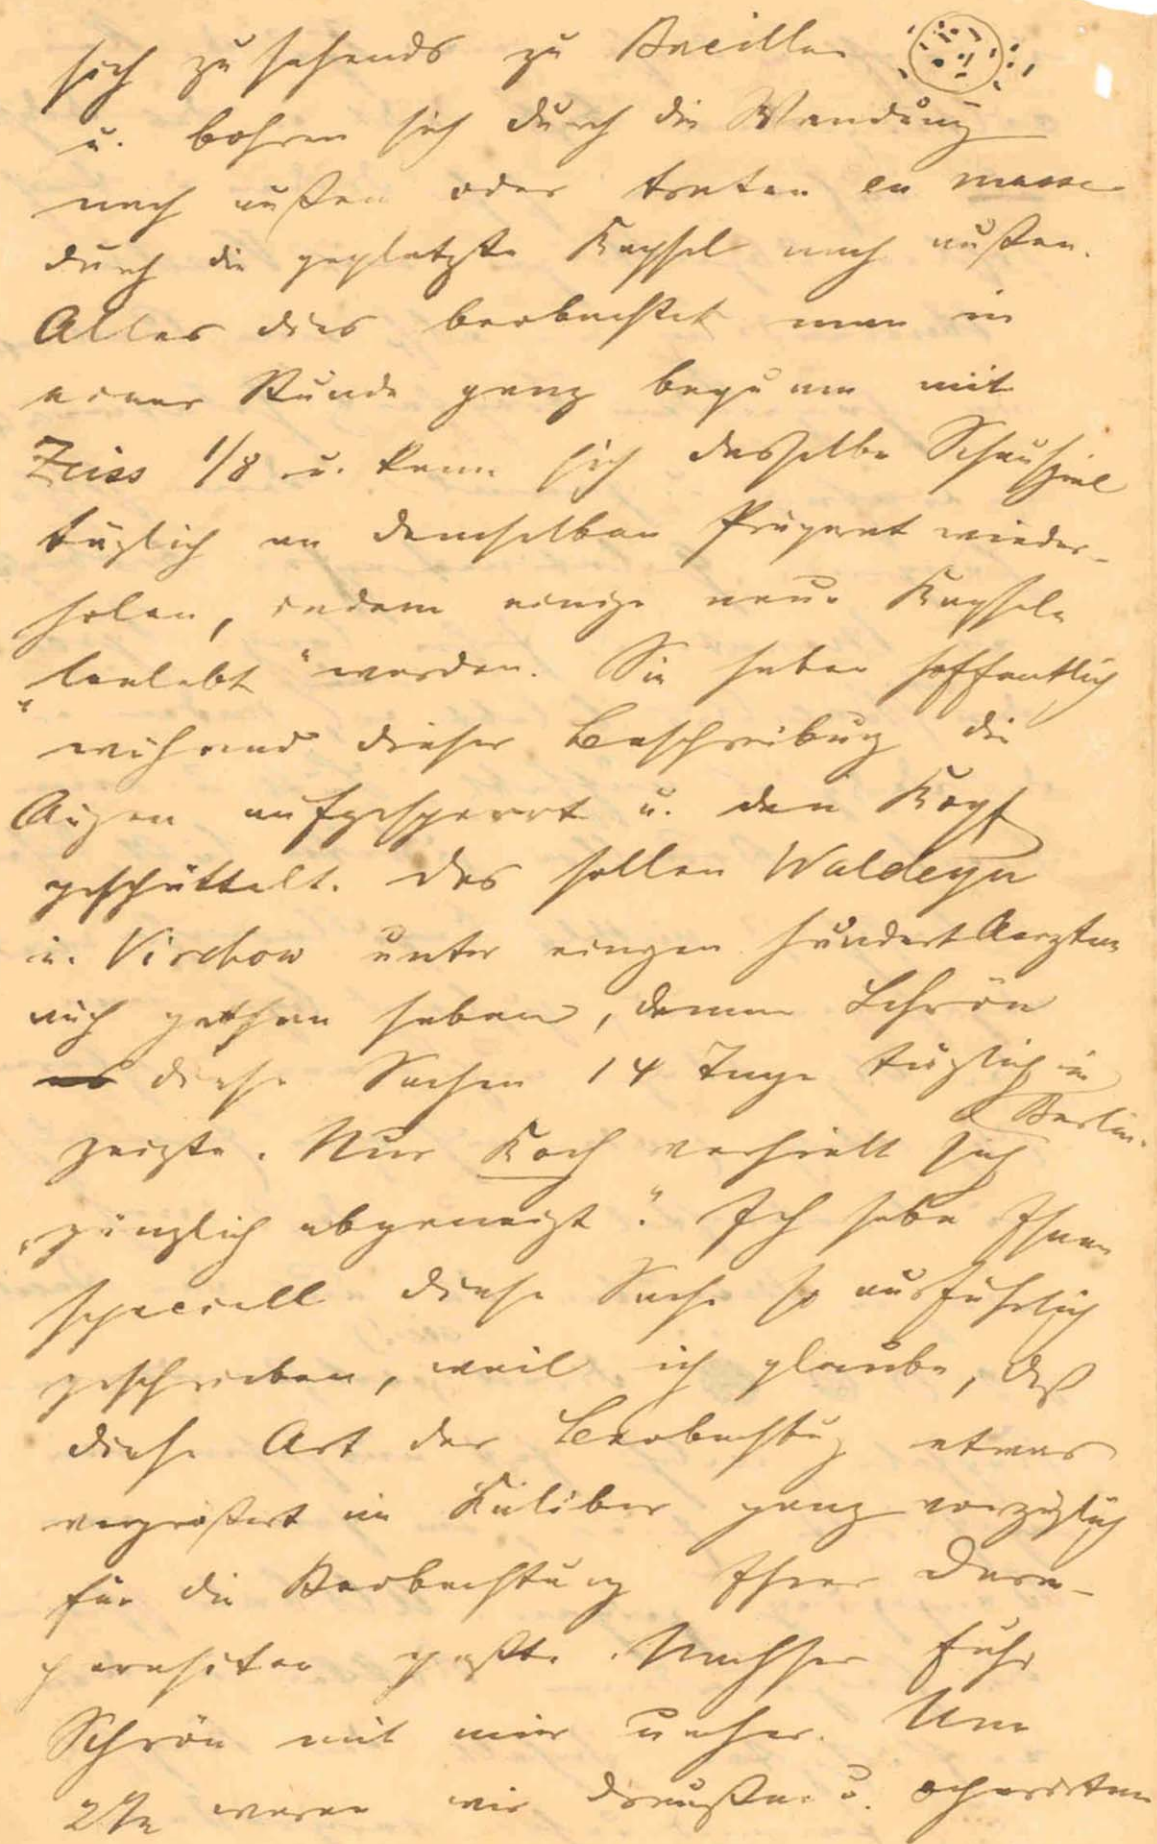 sich zusehends zu Bacillen
u. bohren sich durch die Wandung
nach außen oder treten en masse
durch die geplatzte Kapsel nach außen.
Alles dies beobachtet man in
einer Stunde ganz bequem mit
Zeiss 1/8 u. kann sich dasselbe Schauspiel
täglich an demselben Präparat wieder-
holen, indem einige neue Kapseln
„belebt“ werden. Sie haben hoffentlich
während dieser Beschreibung die
Augen aufgesperrt u. den Kopf
geschüttelt. Das sollen Waldeyer
u. Virchow unter einigen hundert Aerzten
auch gethan haben, denen Schrön
diese Sachen 14 Tage täglich in
Berlin
zeigte. Nur Koch verhielt sich
„gänzlich abgeneigt“. Ich habe Ihnen
speciell diese Sache so ausführlich
geschrieben, weil ich glaube, daß
diese Art der Beobachtung etwas
vergrößert im Kaliber ganz vorzüglich
für die Beobachtung Ihrer Darm-
parasiten paßte. Nachher fuhr
Schrön mit mir umher. Um
waren wir draußen u. operirten